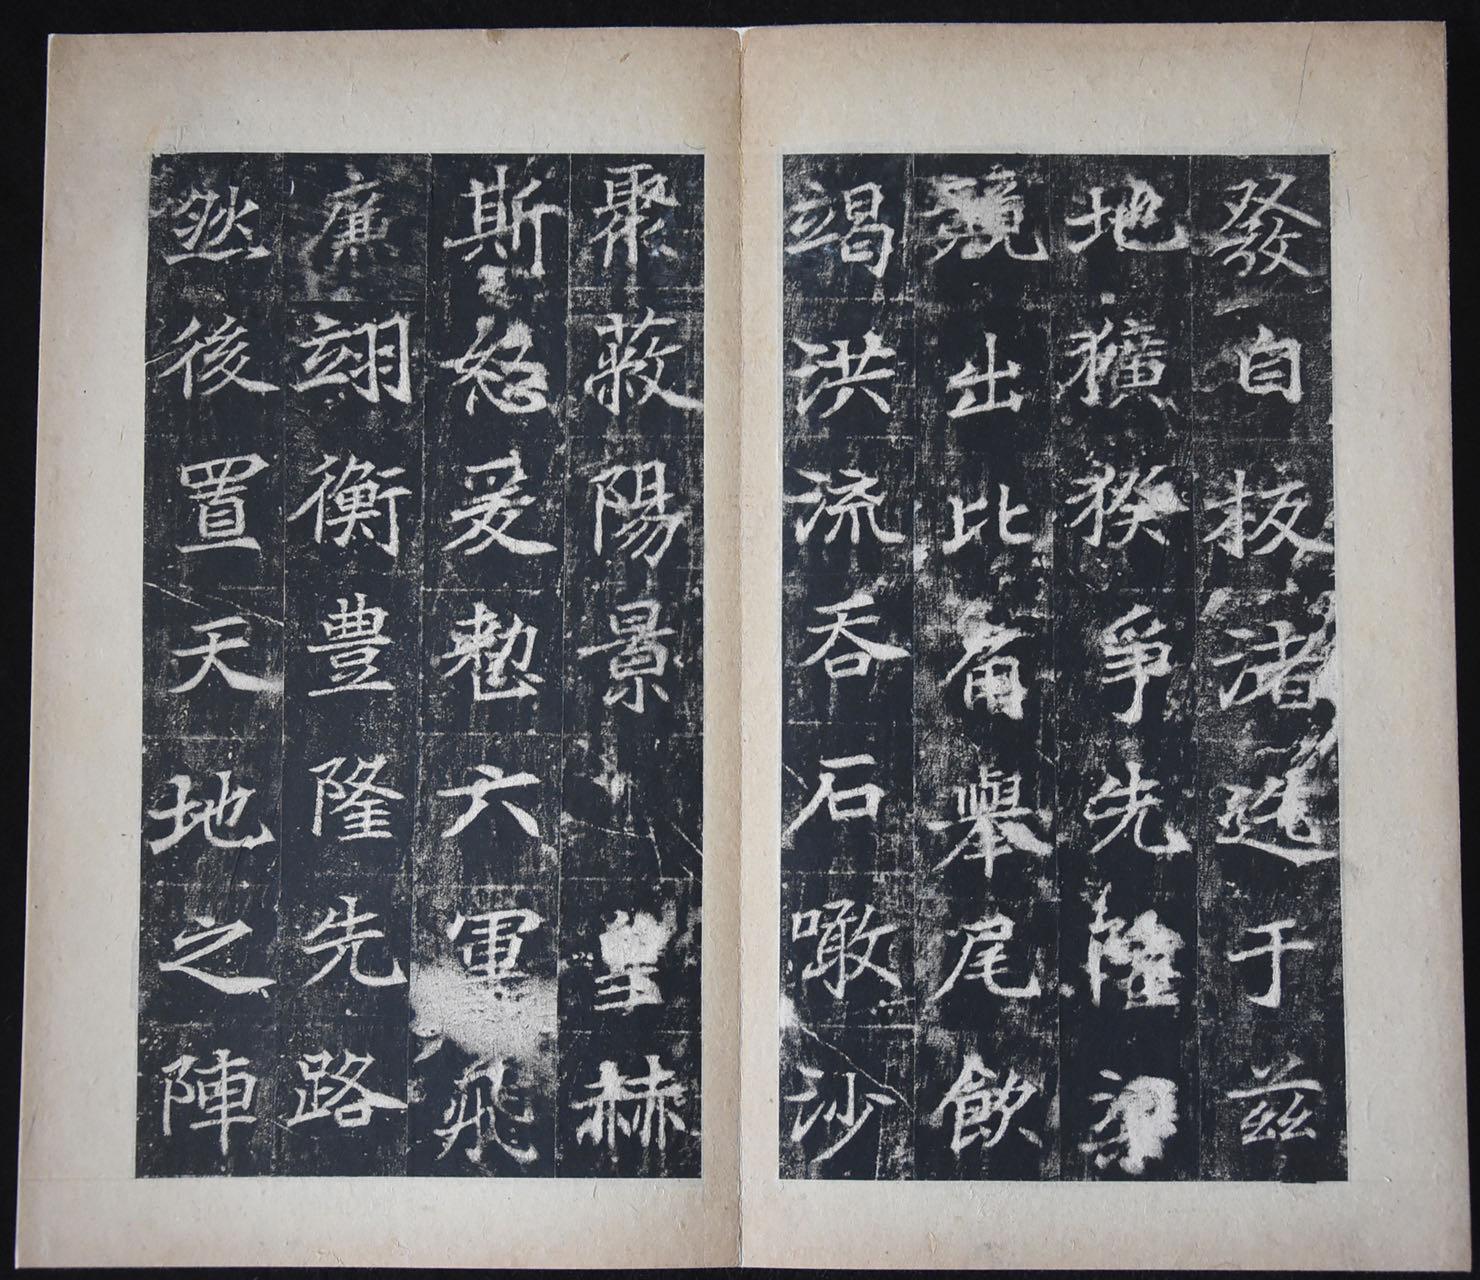 發自板渚迄于茲
地獷猴爭先隆梁
競出比角舉尾飲
竭洪流吞石噉沙
聚蔽陽景皇赫
斯怒爰整六軍飛
廉翊衡豊隆先路
然後置天地之陣